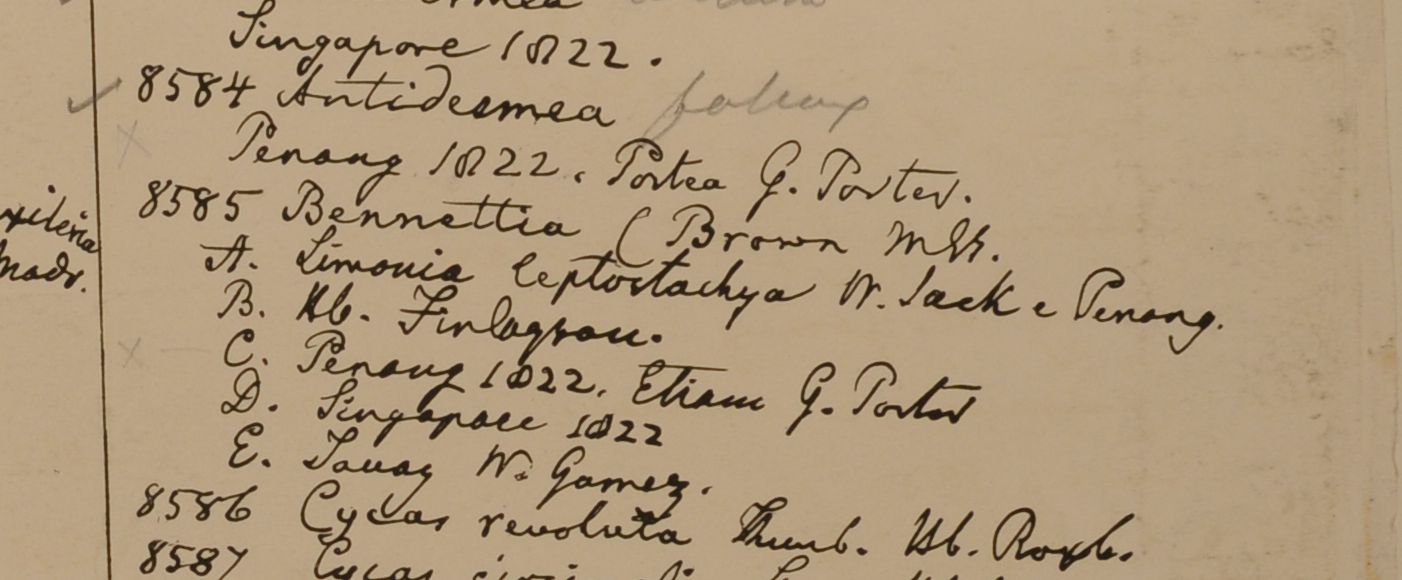 Singapore 1822.
8584 Antidesmea
Penang 1822. Postea G. Porter.
8585 Bennettia (Brown Mss.
A. Limonia leptostachya W. Jack e Penang.
B. Hb. Finlayson.
C. Penang 1822. Etiam G. Porter
D. Singapore 1822
E. Tavoy W. Gomez.
8586 Cycas revoluta Thunb. Hb. Roxb.
8587 Cycas
Madr.